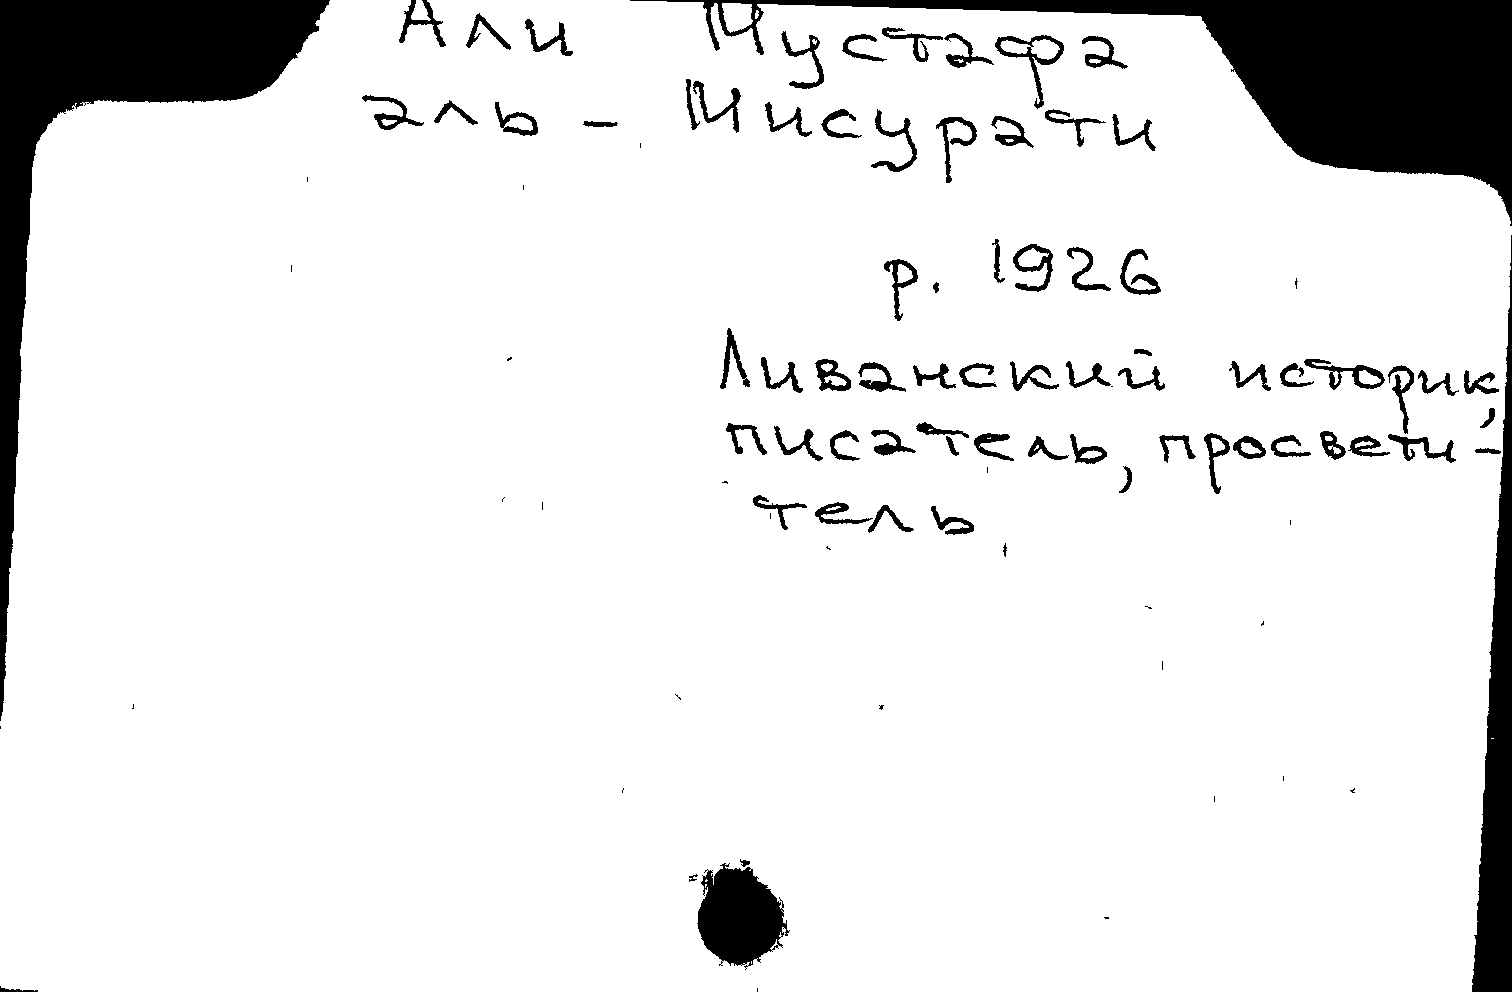 Али Мустафа
аль - Мисурати
р. 1926
Ливанский историк,
писатель, просвети-
тель